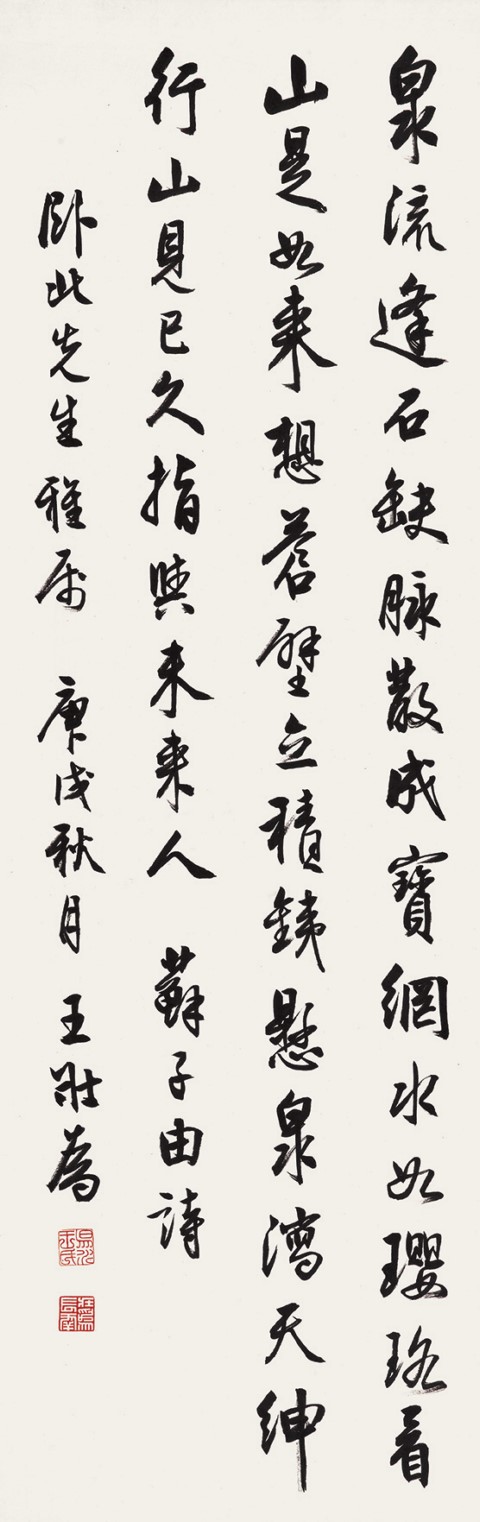 泉流逢石缺脉散成寶網水如瓔珞看
山是如來想蒼壁立積銕懸泉瀉天紳
行山見已久指與未來人 蘇子由詩
卧此先生雅属 庚戌秋月 王壯為